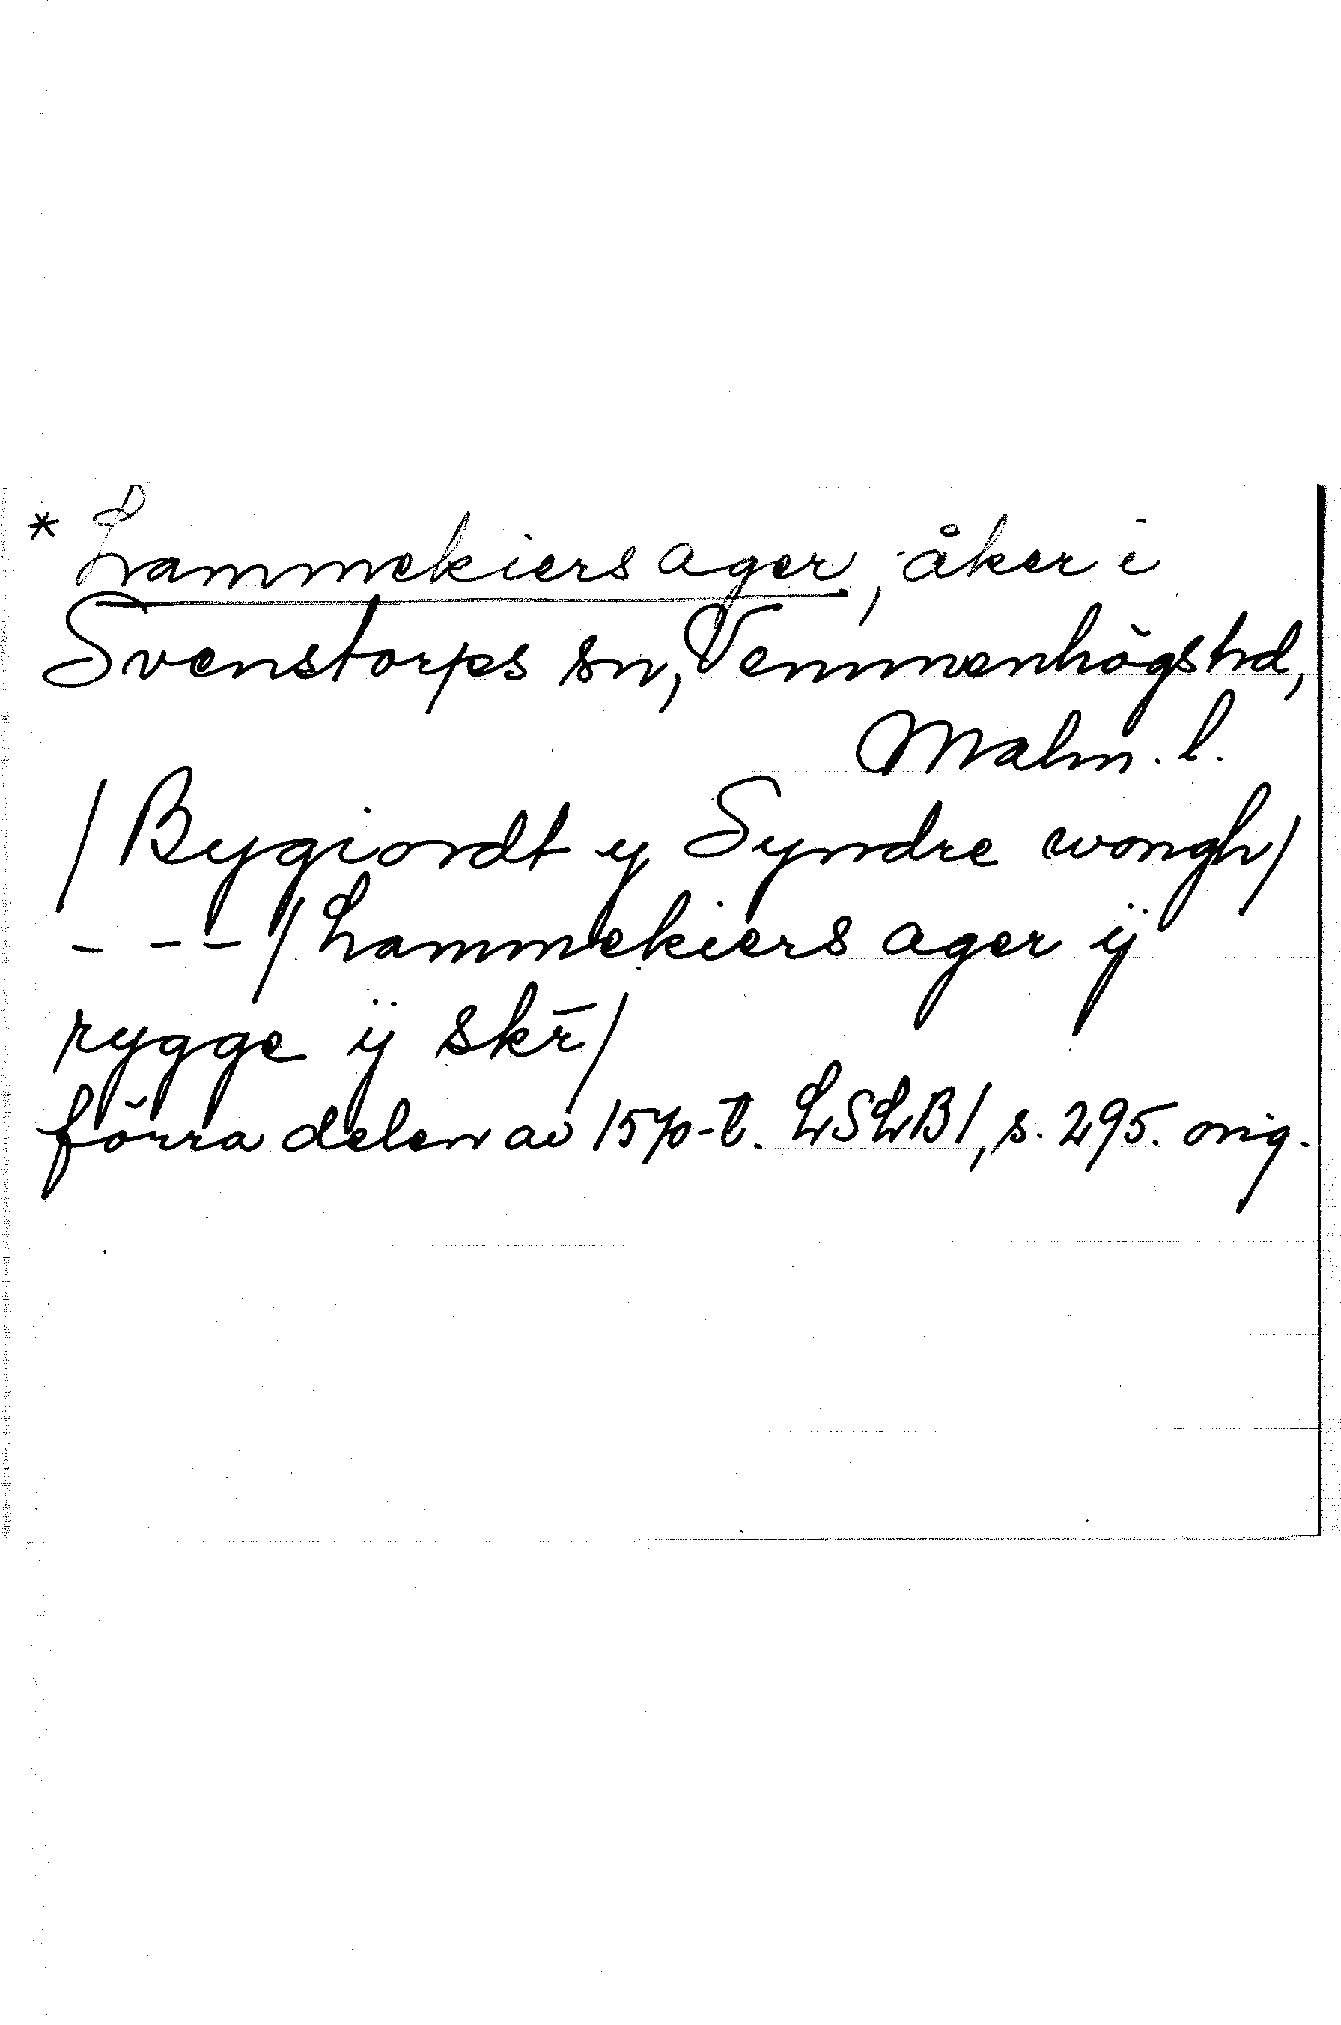 * Lammekiers ager, åker i
Svenstorps sn, Vemmenhögs hd,
Malm. l.
/Bygiordt y Syndre wongh/
- - - /Lammekiers ager ÿ
rygge ÿ skr̄/
förra delen av 1570-t. LSLB1, s. 295. orig.